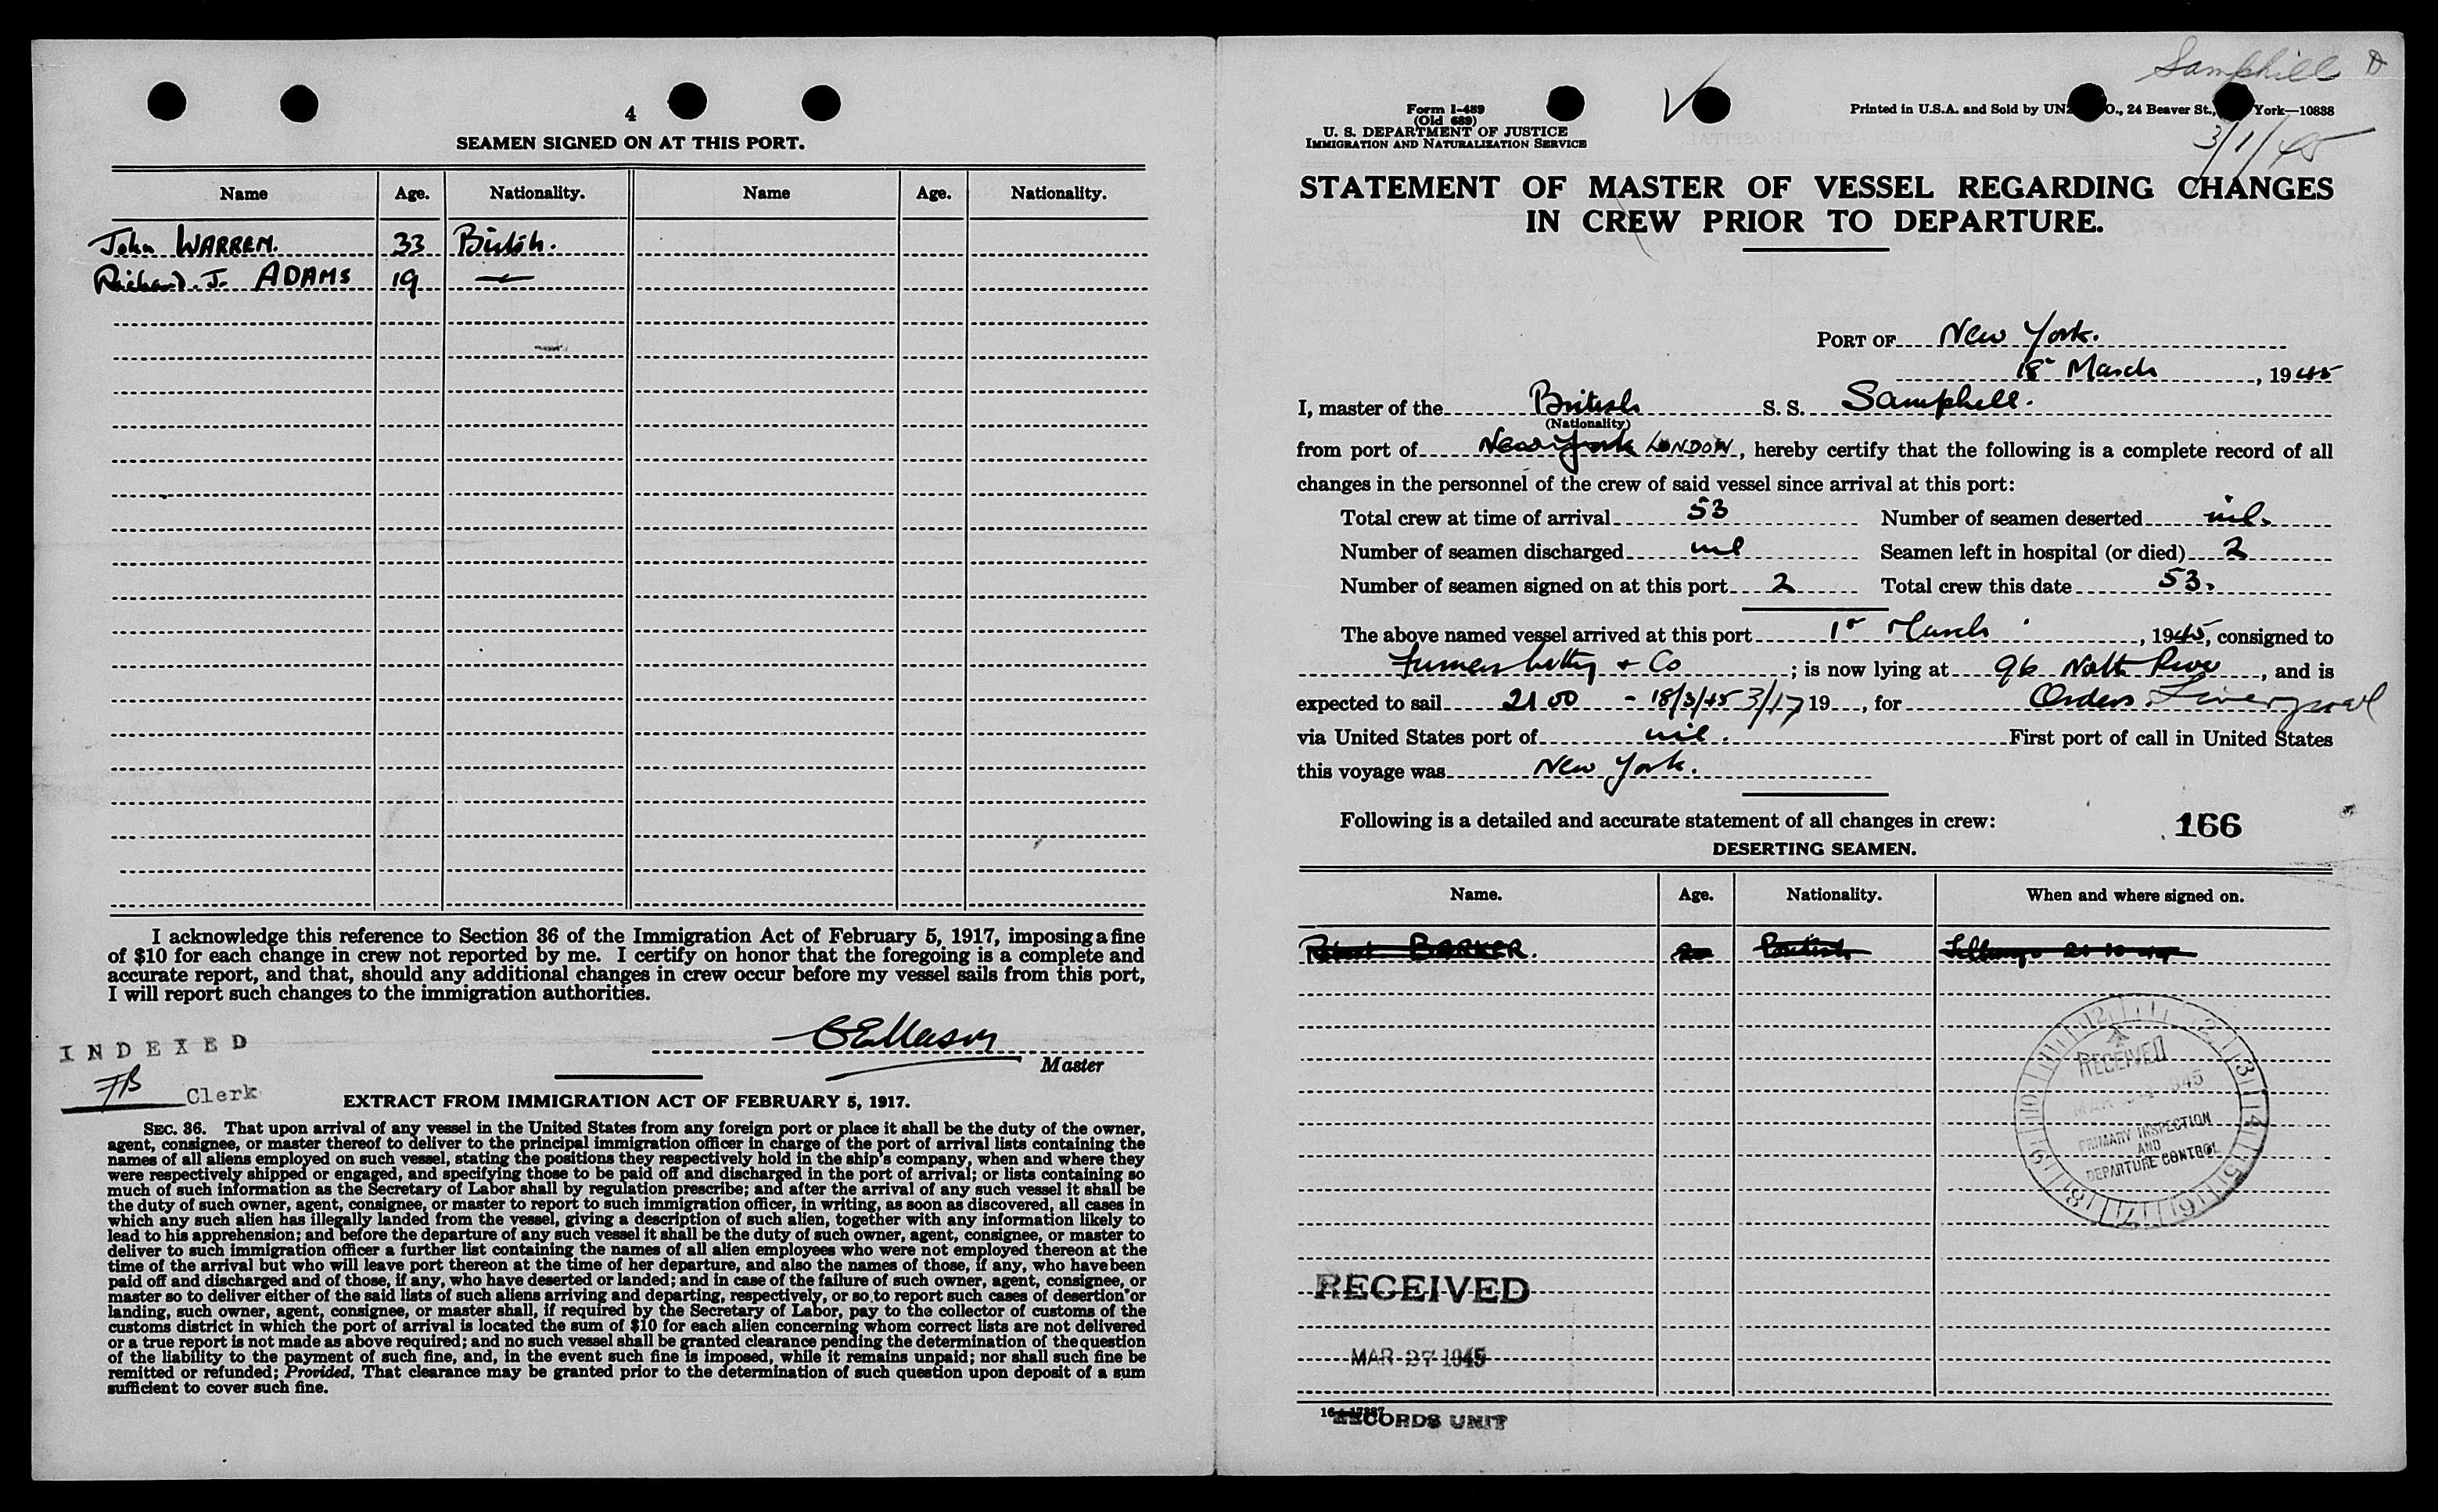 4
SEAMEN SIGNED ON AT THIS PORT.
Name Age. Nationality. Name Age. Nationality.
John WARREN. 33 British.
Richard. J. ADAMS 19
I acknowledge this reference to Section 36 of the Immigration Act of February 5, 1917, imposing a fine
of $10 for each change in crew not reported by me. I certify on honor that the foregoing is a complete and
accurate report, and that, should any additional changes in crew occur before my vessel sails from this port,
I will report such changes to the immigration authorities.
INDEXED
Master
FB Clerk
EXTRACT FROM IMMIGRATION ACT OF FEBRUARY 5, 1917.
SEC. 36. That upon arrival of any vessel in the United States from any foreign port or place it shall be the duty of the owner,
agent, consignee, or master thereof to deliver to the principal immigration officer in charge of the port of arrival lists containing the
names of all aliens employed on such vessel, stating the positions they respectively hold in the ship's company, when and where they
were respectively shipped or engaged, and specifying those to be paid off and discharged in the port of arrival; or lists containing so
much of such information as the Secretary of Labor shall by regulation prescribe; and after the arrival of any such vessel it shall be
the duty of such owner, agent, consignee, or master to report to such immigration officer, in writing, as soon as discovered, all cases in
which any such alien has illegally landed from the vessel, giving a description of such alien, together with any information likely to
lead to his apprehension; and before the departure of any such vessel it shall be the duty of such owner, agent, consignee, or master to
deliver to such immigration officer a further list containing the names of all alien employees who were not employed thereon at the
time of the arrival but who will leave port thereon at the time of her departure, and also the names of those, if any, who have been
paid off and discharged and of those, if any, who have deserted or landed; and in case of the failure of such owner, agent, consignee, or
master so to deliver either of the said lists of such aliens arriving and departing, respectively, or so to report such cases of desertion or
landing, such owner, agent, consignee, or master shall, if required by the Secretary of Labor, pay to the collector of customs of the
customs district in which the port of arrival is located the sum of $10 for each alien concerning whom correct lists are not delivered
or a true report is not made as above required; and no such vessel shall be granted clearance pending the determination of the question
of the liability to the payment of such fine, and, in the event such fine is imposed, while it remains unpaid; nor shall such fine be
remitted or refunded; Provided, That clearance may be granted prior to the determination of such question upon deposit of a sum
sufficient to cover such fine.
Samphill
Form I-489
(Old 689)
U. S. DEPARTMENT OF JUSTICE
IMMIGRATION AND NATURALIZATION SERVICE
Printed in U.S.A. and Sold by UNZ O., 24 Beaver St., York—10838
3/1/45
STATEMENT OF MASTER OF VESSEL REGARDING CHANGES
IN CREW PRIOR TO DEPARTURE.
PORT OF New York.
18 March, 1945
I, master of the British S. S. Samphill.
(Nationality)
from port of New York LONDON, hereby certify that the following is a complete record of all
changes in the personnel of the crew of said vessel since arrival at this port:
Total crew at time of arrival 53 Number of seamen deserted nil.
Number of seamen discharged nil Seamen left in hospital (or died) 2
Number of seamen signed on at this port 2 Total crew this date 53.
The above named vessel arrived at this port 1st March, 1945, consigned to
Furness Withy & Co; is now lying at 96 North River, and is
expected to sail 21 00 - 18/3/45 3/17 19, for Orders. Liverpool
via United States port of nil. First port of call in United States
this voyage was New York.
Following is a detailed and accurate statement of all changes in crew: 166
DESERTING SEAMEN.
Name. Age. Nationality. When and where signed on.
Robert BARKER. British
RECEIVED
MAR 1945
PRIMARY INSPECTION
AND
DEPARTURE CONTROL
RECEIVED
MAR 27 1945
RECORDS UNIT